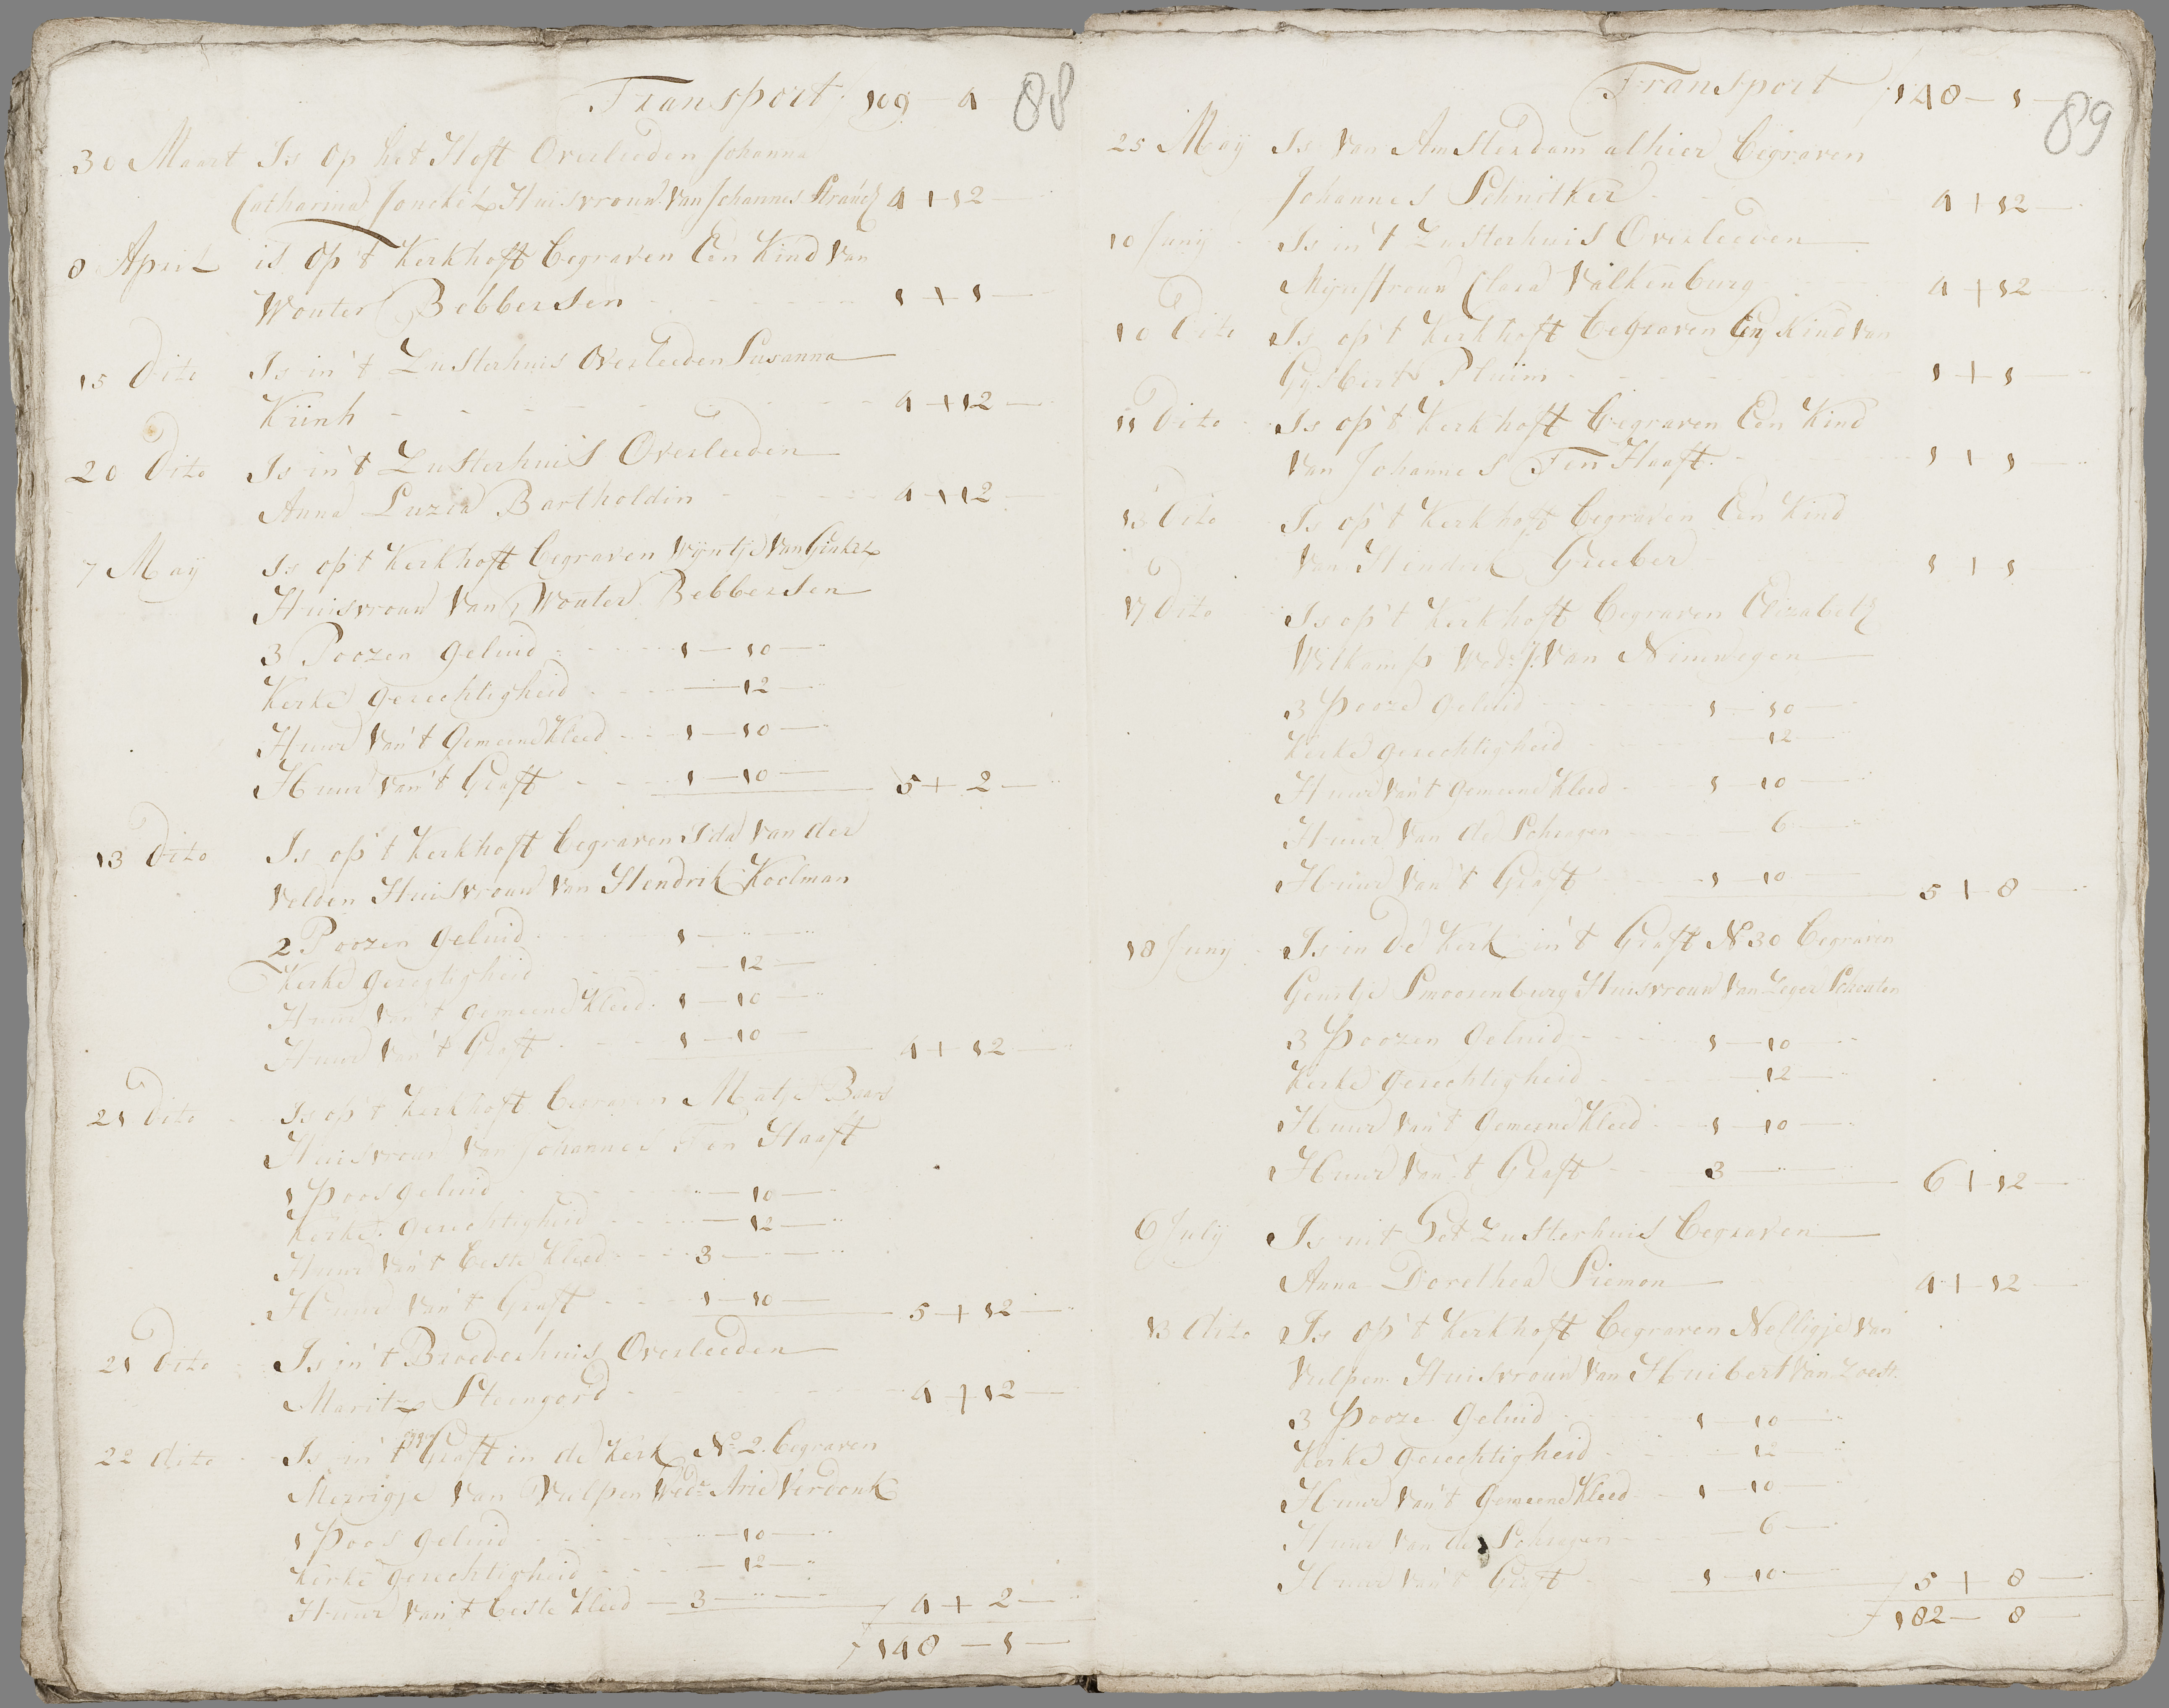 Transport 109 - 4
88
30 Maart Is op het Hoft Overleeden Johanna
Catharina Huisvrouw van Johannes 4 + 12 -
8 April is op 't Kerkhoft begraven Een Kind van
Wouter Bebbersen - - - - 1 + 1 -
15 Dito Is in 't Zusterhuis Overleeden Susanna
Künh - - - - 4 + 12 -
20 Dito Is in 't Zusterhuis Overleeden
Anna Luzia Bartholdin - - - 4 + 12 -
7 Maÿ Is op 't Kerkhoft begraven Wijntje van Ginkel
Huisvrouw van Wouter Bebbersen
3 Poozen geluid - - - 1 - 10 -
Kerke gerechtigheid - - - 12 -
Huur van 't Gemeene Kleed - - 1 - 10 -
Huur van 't Graft - - 1 - 10 - 5 + 2 -
13 Dito Is op 't Kerkhoft begraven Ida van der
Velden Huisvrouw van Hendrik Koelman
2 Poozen geluid - - - 1 -
Kerke geregtigheid - - 12 -
Huur van 't gemeene Kleed - 1 - 10 -
Huur van 't Graft - - 1 - 10 - 4 + 12 -
21 Dito Is op 't Kerkhoft begraven Matje Baars
Huisvrouw van Johannes Ten Haaft
1 Poos geluid - - - 10 -
Kerke gerechtigheid - - - 12 -
Huur van 't beste Kleed - - 3 -
Huur van 't Graft - - 1 - 10 - 5 + 12 -
21 Dito Is in 't Broederhuis Overleeden
Maritz Steengord - - - 4 + 12 -
22 dito Is in 't Graft in de Kerk No 2. begraven
Merrigje van Vulpen Wed: Arie Verdonk
1 Poos geluid - - - 10 -
Kerke gerechtigheid - - - 12 -
Huur van 't beste Kleed - 3 - ƒ 4 + 2 -
ƒ 148 - 1 -
Transport ƒ 148 - 1 -
89
25 Maÿ Is van Amsterdam alhier begraven
Johannes Schnitker - - 4 + 12 -
10 Junÿ Is in 't Zusterhuis Overleeden
Mijnffrouw Clara Valkenburg - - 4 + 12 -
10 Dito Is op 't Kerkhoft begraven Een Kind van
Gysbert Pluim - - - 1 + 1 -
11 Dito Is op 't Kerkhoft begraven Een Kind
van Johannes Ten Haaft - - 1 + 1 -
13 Dito Is op 't Kerkhoft begraven Een Kind
van Hendrik Greeber - - 1 + 1 -
17 Dito Is op 't Kerkhoft begraven Elizabeth
Witkamp Wed: J: van Nimwegen
3 Pooze geluid - - - 1 - 10 -
Kerke gerechtigheid - - 12 -
Huur van 't gemeene Kleed - 1 - 10 -
Huur van de Schragen - - 6 -
Huur van 't Graft - - 1 - 10 - 5 + 8 -
18 Junÿ Is in de Kerk in 't Graft No 30 begraven
Geurtje Smoorenburg Huisvrouw van Zeger Schouten
3 Poozen geluid - - 1 - 10 -
Kerke gerechtigheid - - 12 -
Huur van 't gemeene Kleed - 1 - 10 -
Huur van 't Graft - - 3 - 6 + 12 -
6 Julÿ Is uit Het Zusterhuis begraven
Anna Dorethea Siemon 4 + 12 -
13 dito Is op 't Kerkhoft begraven Nelligje van
Vulpen Huisvrouw van Huibert van Zoest
3 Pooze geluid - - 1 - 10 -
Kerke gerechtigheid - - 12 -
Huur van 't gemeene Kleed - 1 - 10 -
Huur van de Schragen - - 6 -
Huur van 't Graft - - 1 - 10 - ƒ 5 + 8 -
ƒ 182 - 8 -